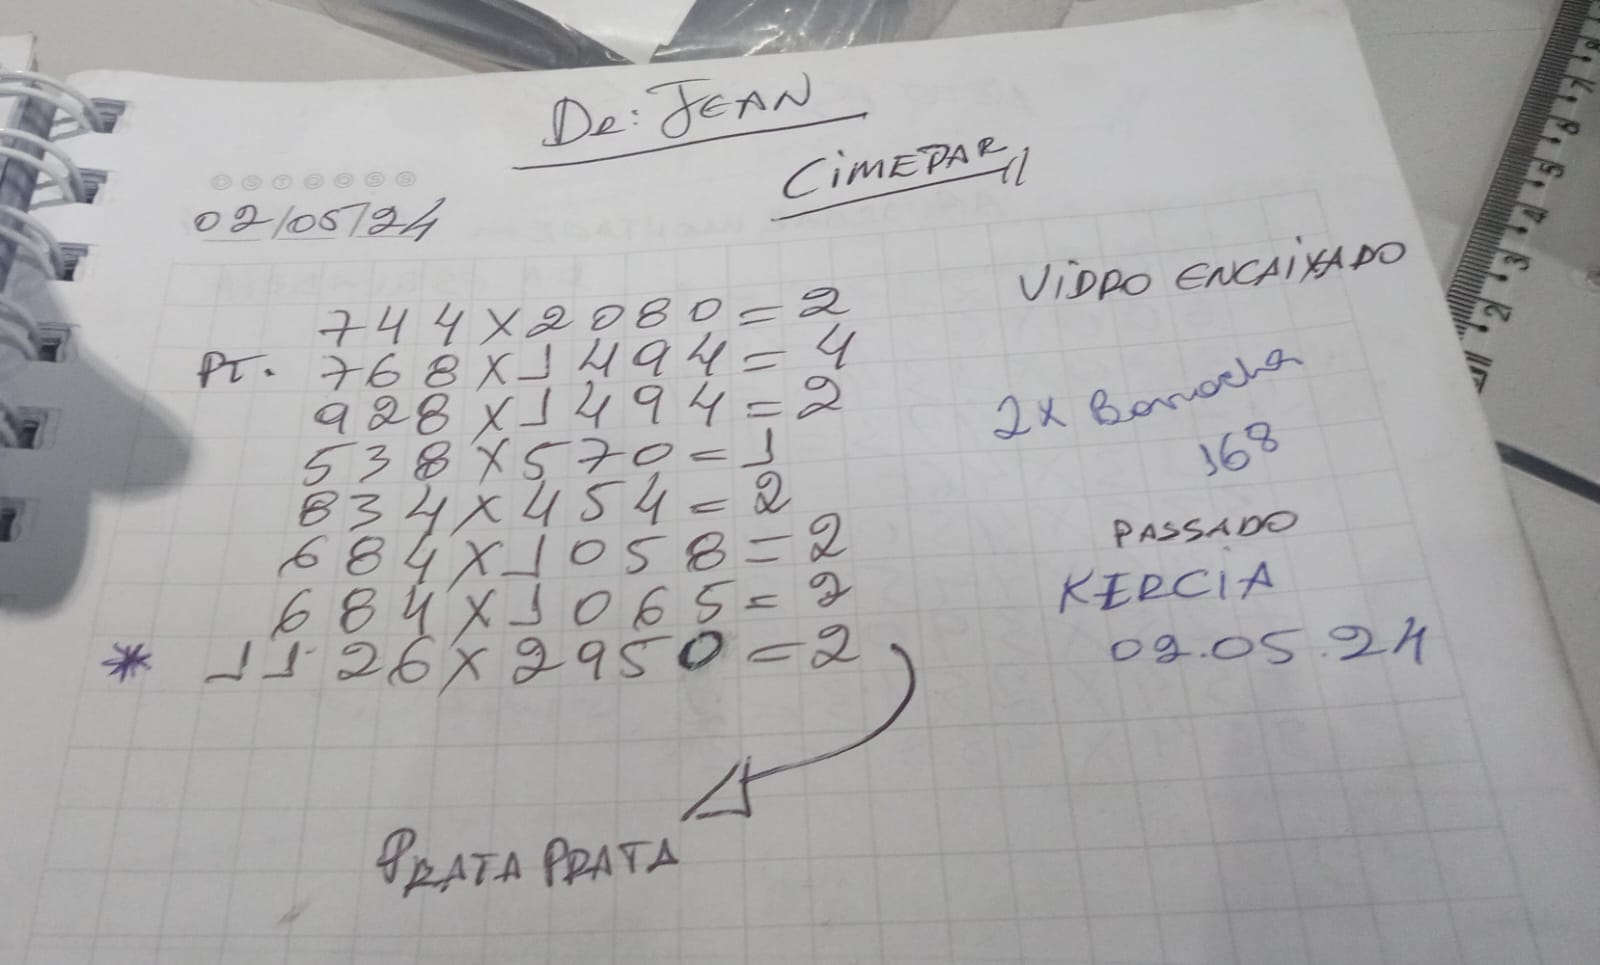 De: JEAN
CiMEPAR
D S T Q Q S S
02/05/24
744x2080=2
PT. 768x1494=4
928x1494=2
538x570=1
834x454=2
684x1058=2
684x1065=2
* 1126x2950=2
PRATA PRATA
ViDRO ENCAiXADO
2x Borracha
168
PASSADO
KERCiA
02.05.24
2 3 4 5 6 7 8